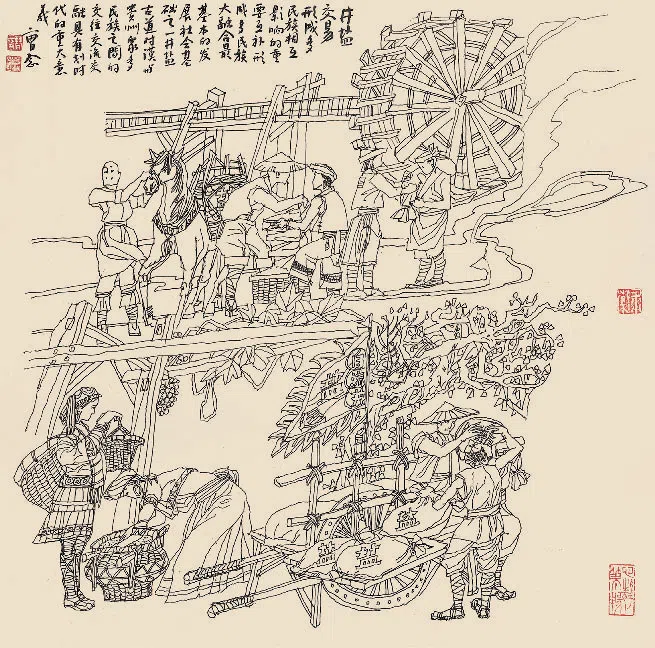 井盐
交易
形成多
民族相互
影响的重
要互补形
成多民族
大融合最
基本的发
展社会基
础之一井盐
古道对
贵州众多
民族之间的
交往交流交
融具有划时
代的重大意
义